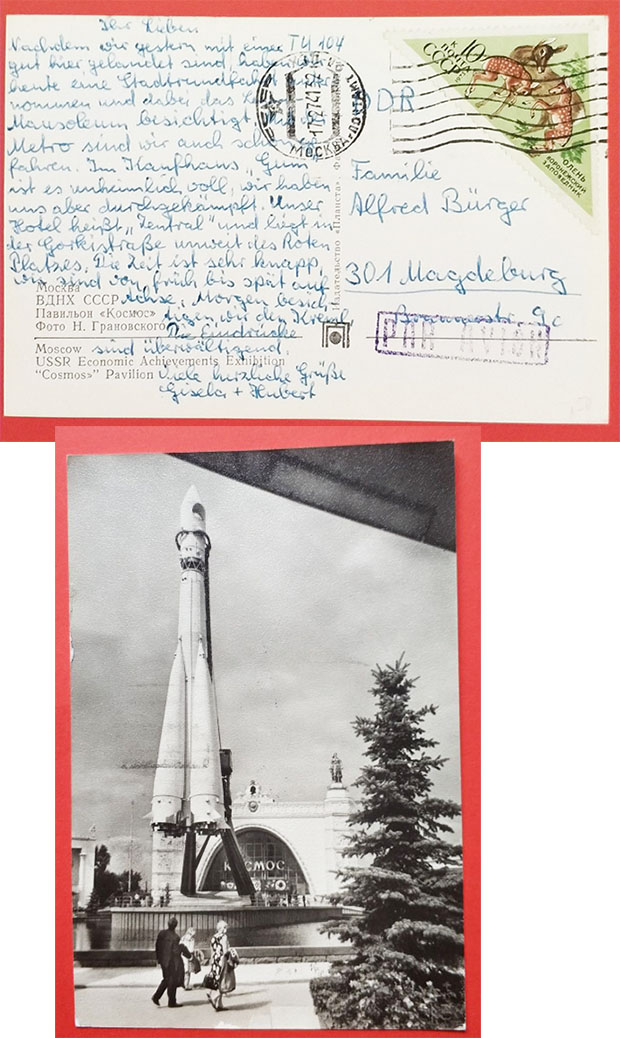 Ihr Lieben
Nachdem wir gestern mit einer TU 104
gut hier gelandet sind, haben wir
heute eine Stadtrundfahrt
nommen und dabei das
Mausoleum besichtigt. Mit der
Metro sind wir auch schon ge-
fahren. Im Kaufhaus „Gum"
ist es unheimlich voll, wir haben
uns aber durchgekämpft. Unser
Hotel heißt „Zentral" und liegt in
der Gorkistraße unweit des Roten
Platzes. Die Zeit ist sehr knapp,
wir sind von früh bis spät auf
Achse. Morgen besich-
tigen wir den Kreml.
Die Eindrücke
sind überwältigend.
Viele herzliche Grüße
Gisela + Hubert
Москва
ВДНХ СССР
Павильон «Космос»
Фото Н. Грановского
Moscow
USSR Economic Achievements Exhibition
"Cosmos»" Pavilion
Издательство «Планета»
МОСКВА-ПОЧТАМТ
10
К
ПОЧТА
СССР
ОЛЕНЬ
ВОРОНЕЖСКИЙ
ЗАПОВЕДНИК
DDR
Familie
Alfred Bürger
301 Magdeburg
9c
PAR AVION
КОСМОС